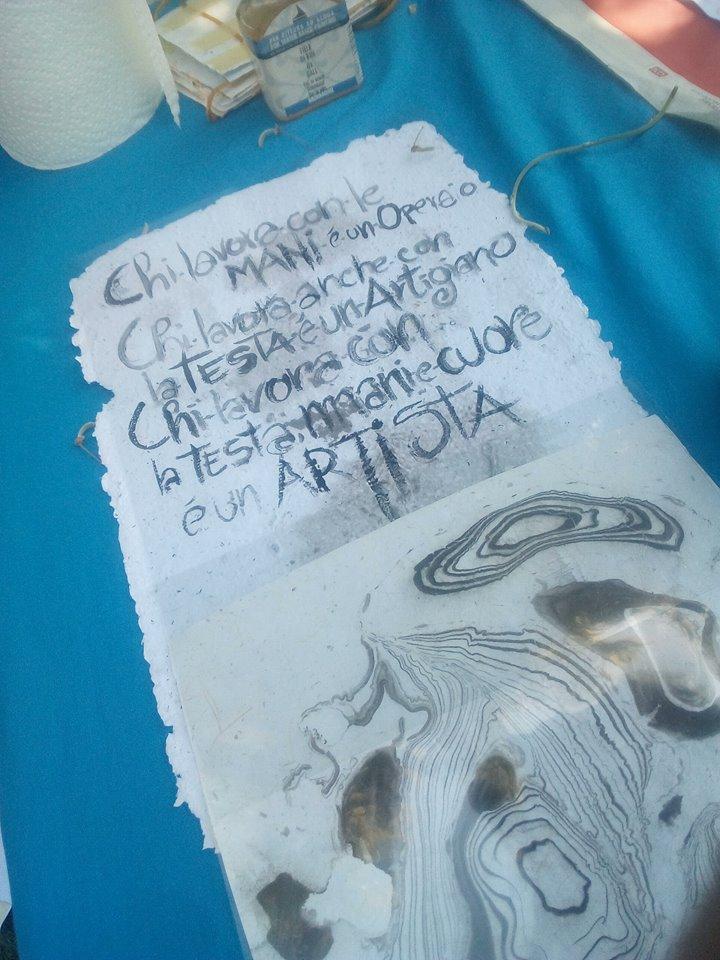 Chi lavora con le
MANI é un Operaio
Chi lavora anche con
la TESTA é un Artigiano
Chi lavora con
la TESTA, mani e cuore
é un ARTISTA